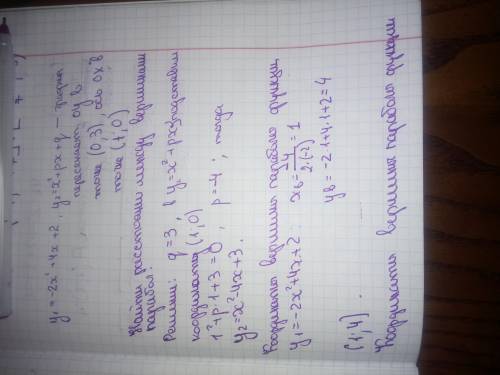 y₁=-2x²+4x+2, y₂=x²+px+q – график
пересекает Оу в
точке (0;3), ось Ох в
точке (1;0)
Найти расстояние между вершинами
парабол.
Решение: q=3, в y₂=x²+px+3 подставим
координаты (1;0)
1²+p·1+3=0, p=-4; тогда
y₂=x²-4x+3.
Координаты вершины параболы функции
y₁=-2x²+4x+2: x_в=-4/2·(-2)=1
y_в=-2·1+4·1+2=4
(1;4)
Координаты вершины параболы функции